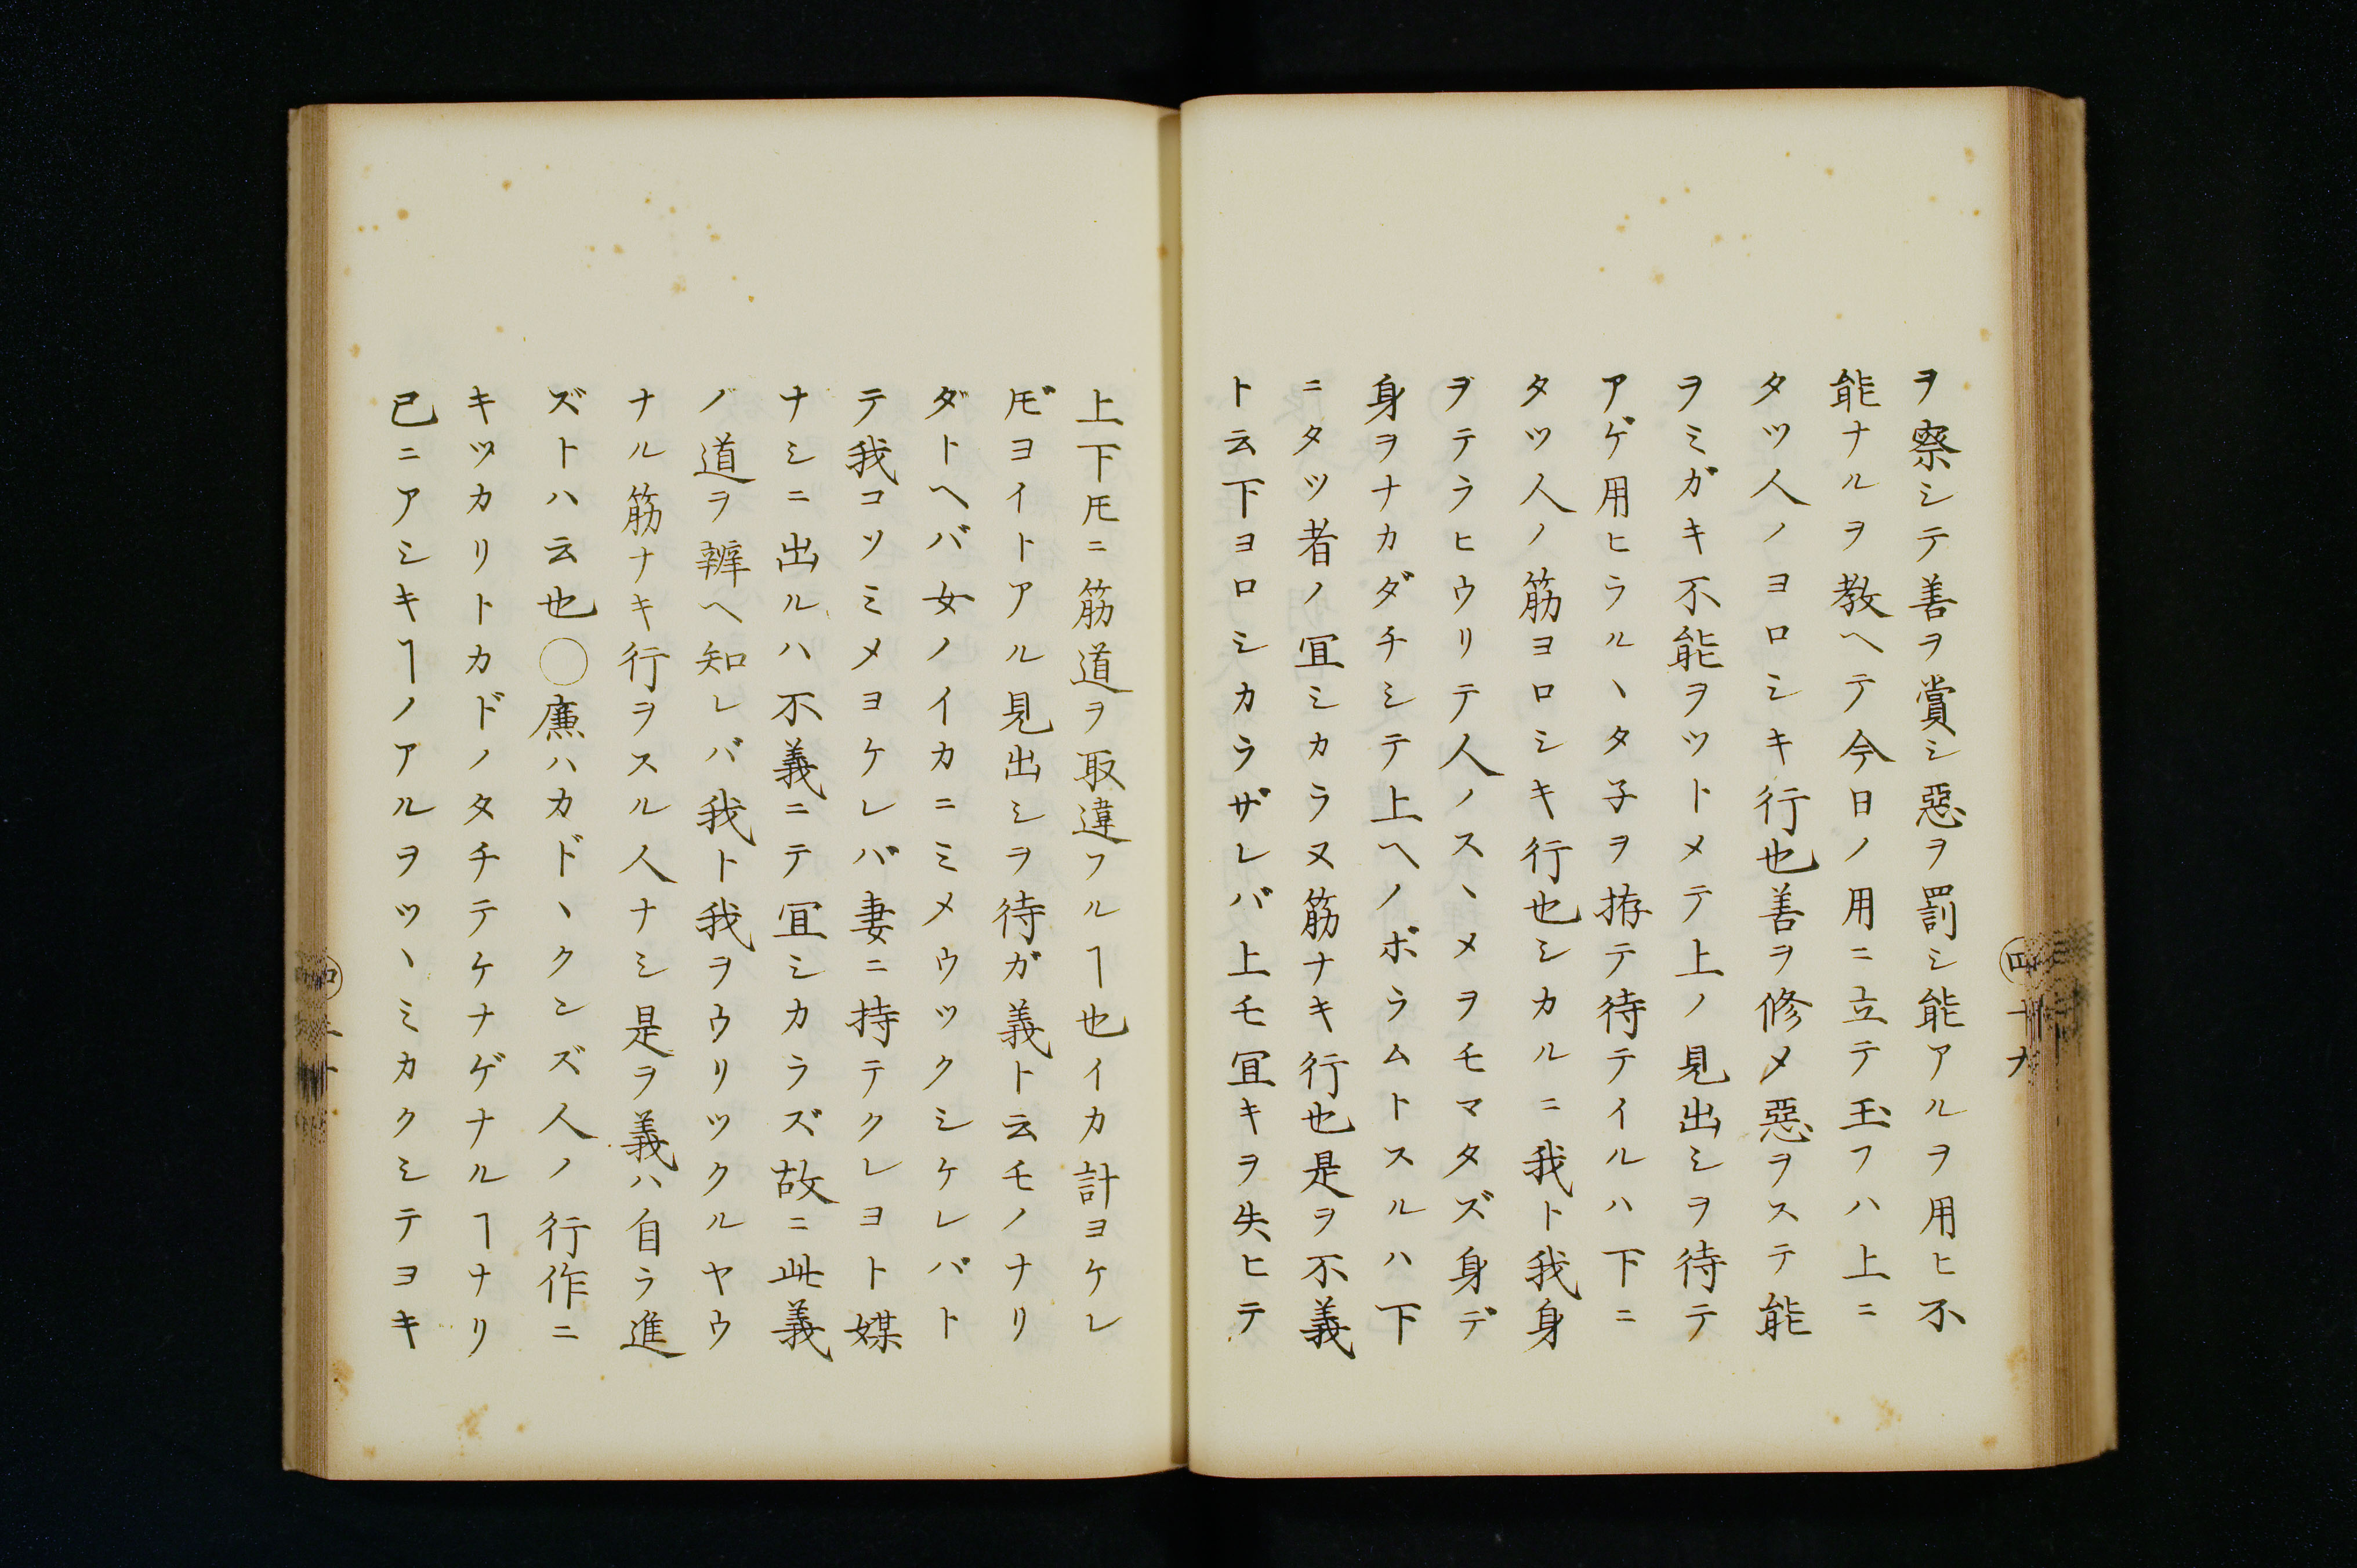 ヲ察シテ善ヲ賞シ惡ヲ罰シ能アルヲ用ヒ不
能ナルヲ教ヘテ今日ノ用ニ立テ玉フハ上ニ
タツ人ノヨロシキ行也善ヲ修メ惡ヲステ能
ヲミガキ不能ヲツトメテ上ノ見出シヲ待テ
アゲ用ヒラルヽタ子ヲ拵テ待テイルハ下ニ
タツ人ノ筋ヨロシキ行也シカルニ我ト我身
ヲテラヒウリテ人ノスヽメヲモマタズ身デ
身ヲナカダチシテ上ヘノボラムトスルハ下
ニタツ者ノ冝シカラヌ筋ナキ行也是ヲ不義
ト云下ヨロシカラザレバ上モ冝キヲ失ヒテ
上下𪜈ニ筋道ヲ取違フルヿ也イカ計ヨケレ
𪜈ヨイトアル見出シヲ待ガ義ト云モノナリ
ダトヘバ女ノイカニミメウツクシケレバト
テ我コソミメヨケレバ妻ニ持テクレヨト媒
ナシニ出ルハ不義ニテ冝シカラズ故ニ此義
ノ道ヲ辨ヘ知レバ我ト我ヲウリツクルヤウ
ナル筋ナキ行ヲスル人ナシ是ヲ義ハ自ラ進
ズトハ云也〇廉ハカドヽクンズ人ノ行作ニ
キツカリトカドノタチテケナゲナルヿナリ
已ニアシキヿノアルヲツヽミカクシテヨキ